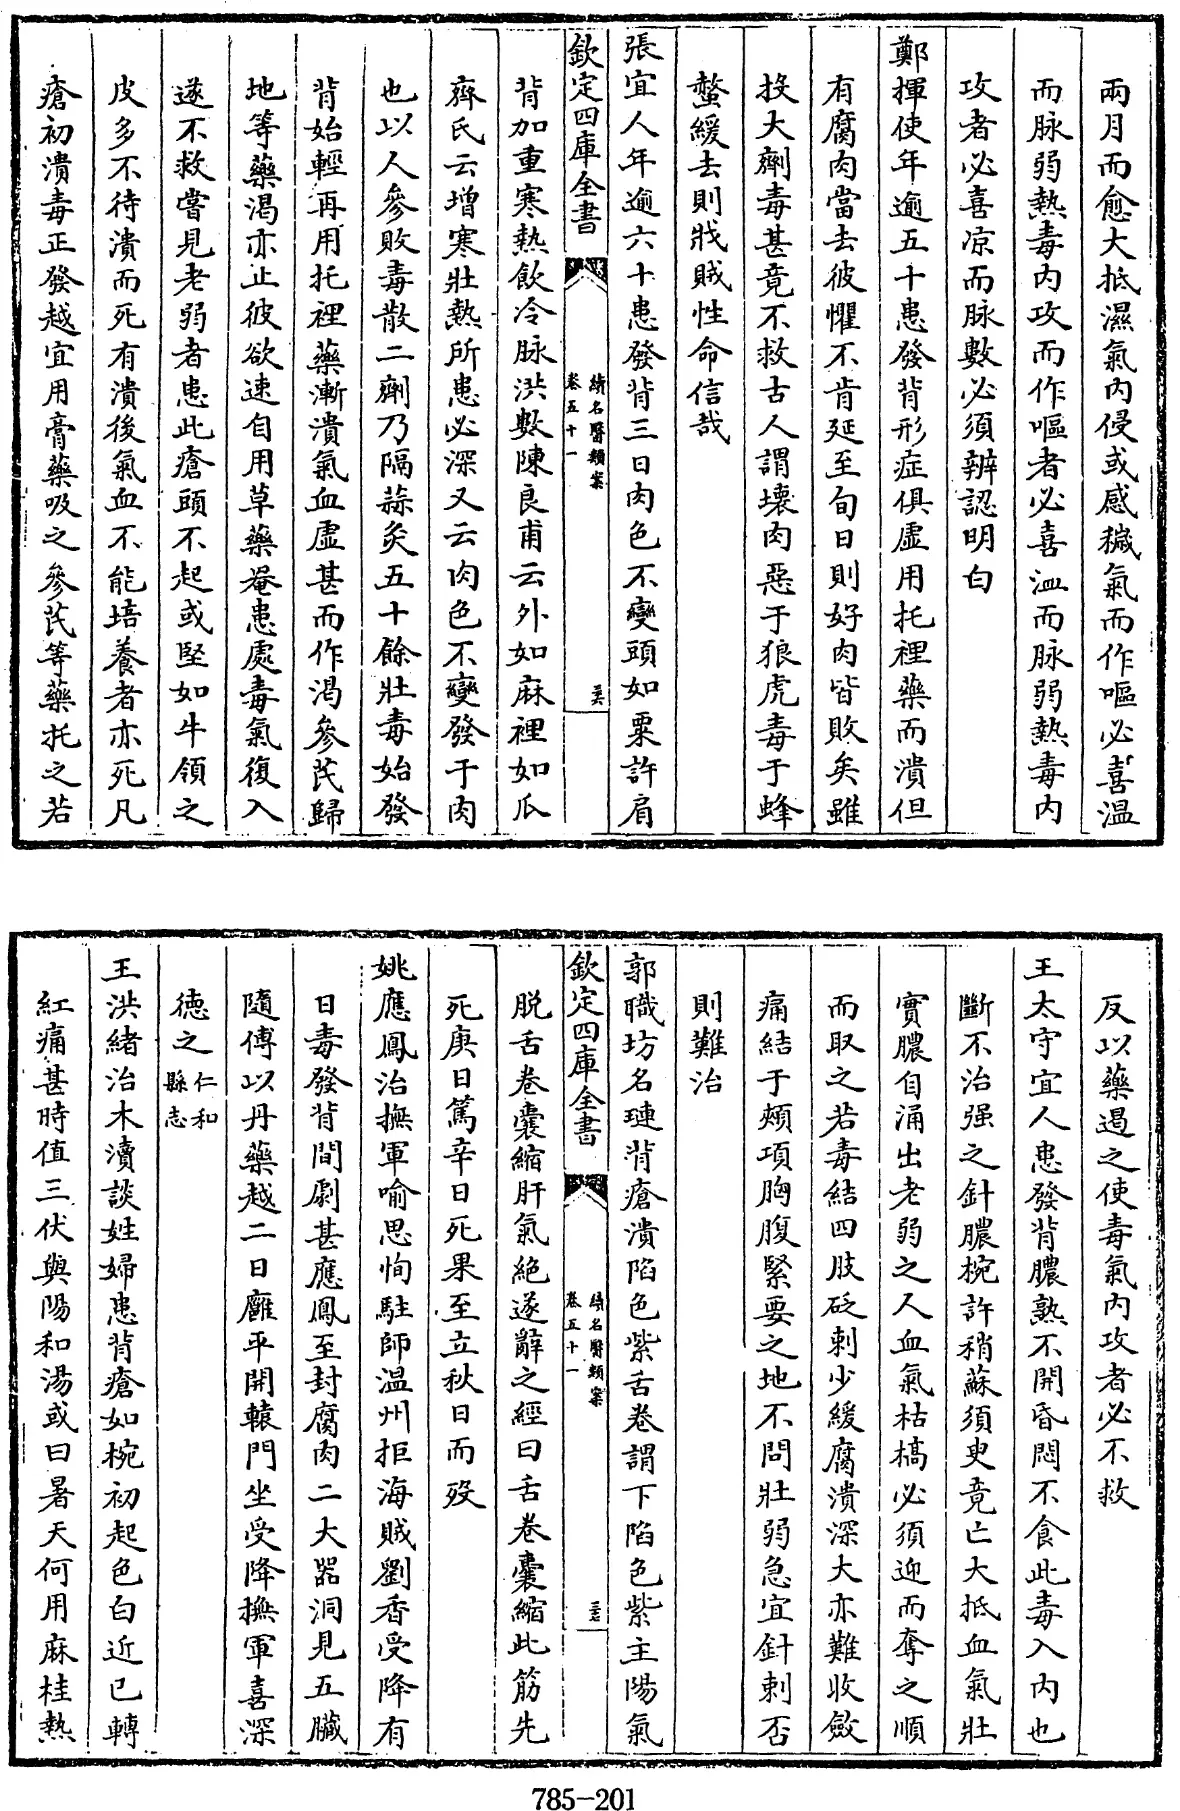 兩月而愈大抵濕氣内侵或感穢氣而作嘔必喜温
而脉弱熱毒内攻而作嘔者必喜溫而脉弱熱毒内
攻者必喜凉而脉數必須辨認明白
鄭揮使年逾五十患發背形症俱虚用托裡藥而潰但
有腐肉當去彼懼不肯延至旬日則好肉皆敗矣雖
投大劑毒甚竟不救古人謂壊肉惡于狼虎毒于蜂
螫緩去則戕賊性命信哉
張宜人年逾六十患發背三日肉色不變頭如粟許肩
欽定四庫全書
續名醫類案
卷五十一
背加重寒熱飲冷脉洪數陳良甫云外如麻裡如瓜
齊氏云增寒壯熱所患必深又云肉色不變發于肉
也以人參敗毒散二劑乃隔蒜灸五十餘壯毒始發
背始輕再用托裡藥漸潰氣血虚甚而作渴參芪歸
地等藥渴亦止彼欲速自用草藥菴患處毒氣復入
遂不救嘗見老弱者患此瘡頭不起或堅如牛領之
皮多不待潰而死有潰後氣血不能培養者亦死凡
瘡初潰毒正發越宜用膏藥吸之參芪等藥托之若
反以藥遏之使毒氣内攻者必不救
王太守宜人患發背膿熟不開昏悶不食此毒入内也
斷不治强之針膿椀許稍蘇須臾竟亡大抵血氣壯
實膿自涌出老弱之人血氣枯槁必須迎而奪之順
而取之若毒結四肢砭刺少緩腐潰深大亦難收斂
痛結于頰項胸腹緊要之地不問壯弱急宜針刺否
則難治
郭職坊名璉背瘡潰陷色紫舌卷謂下陷色紫主陽氣
欽定四庫全書
續名醫類案
卷五十一
脱舌卷囊縮肝氣絶遂辭之經曰舌卷囊縮此筋先
死庚日篤辛日死果至立秋日而殁
姚應鳳治撫軍喻思恂駐師温州拒海賊劉香受降有
日毒發背間劇甚應鳳至封腐肉二大器洞見五臟
隨傅以丹藥越二日癰平開轅門坐受降撫軍喜深
德之仁和縣志
王洪緒治木瀆談姓婦患背瘡如椀初起色白近已轉
紅痛甚時值三伏與陽和湯或曰暑天何用麻桂熱
785-201